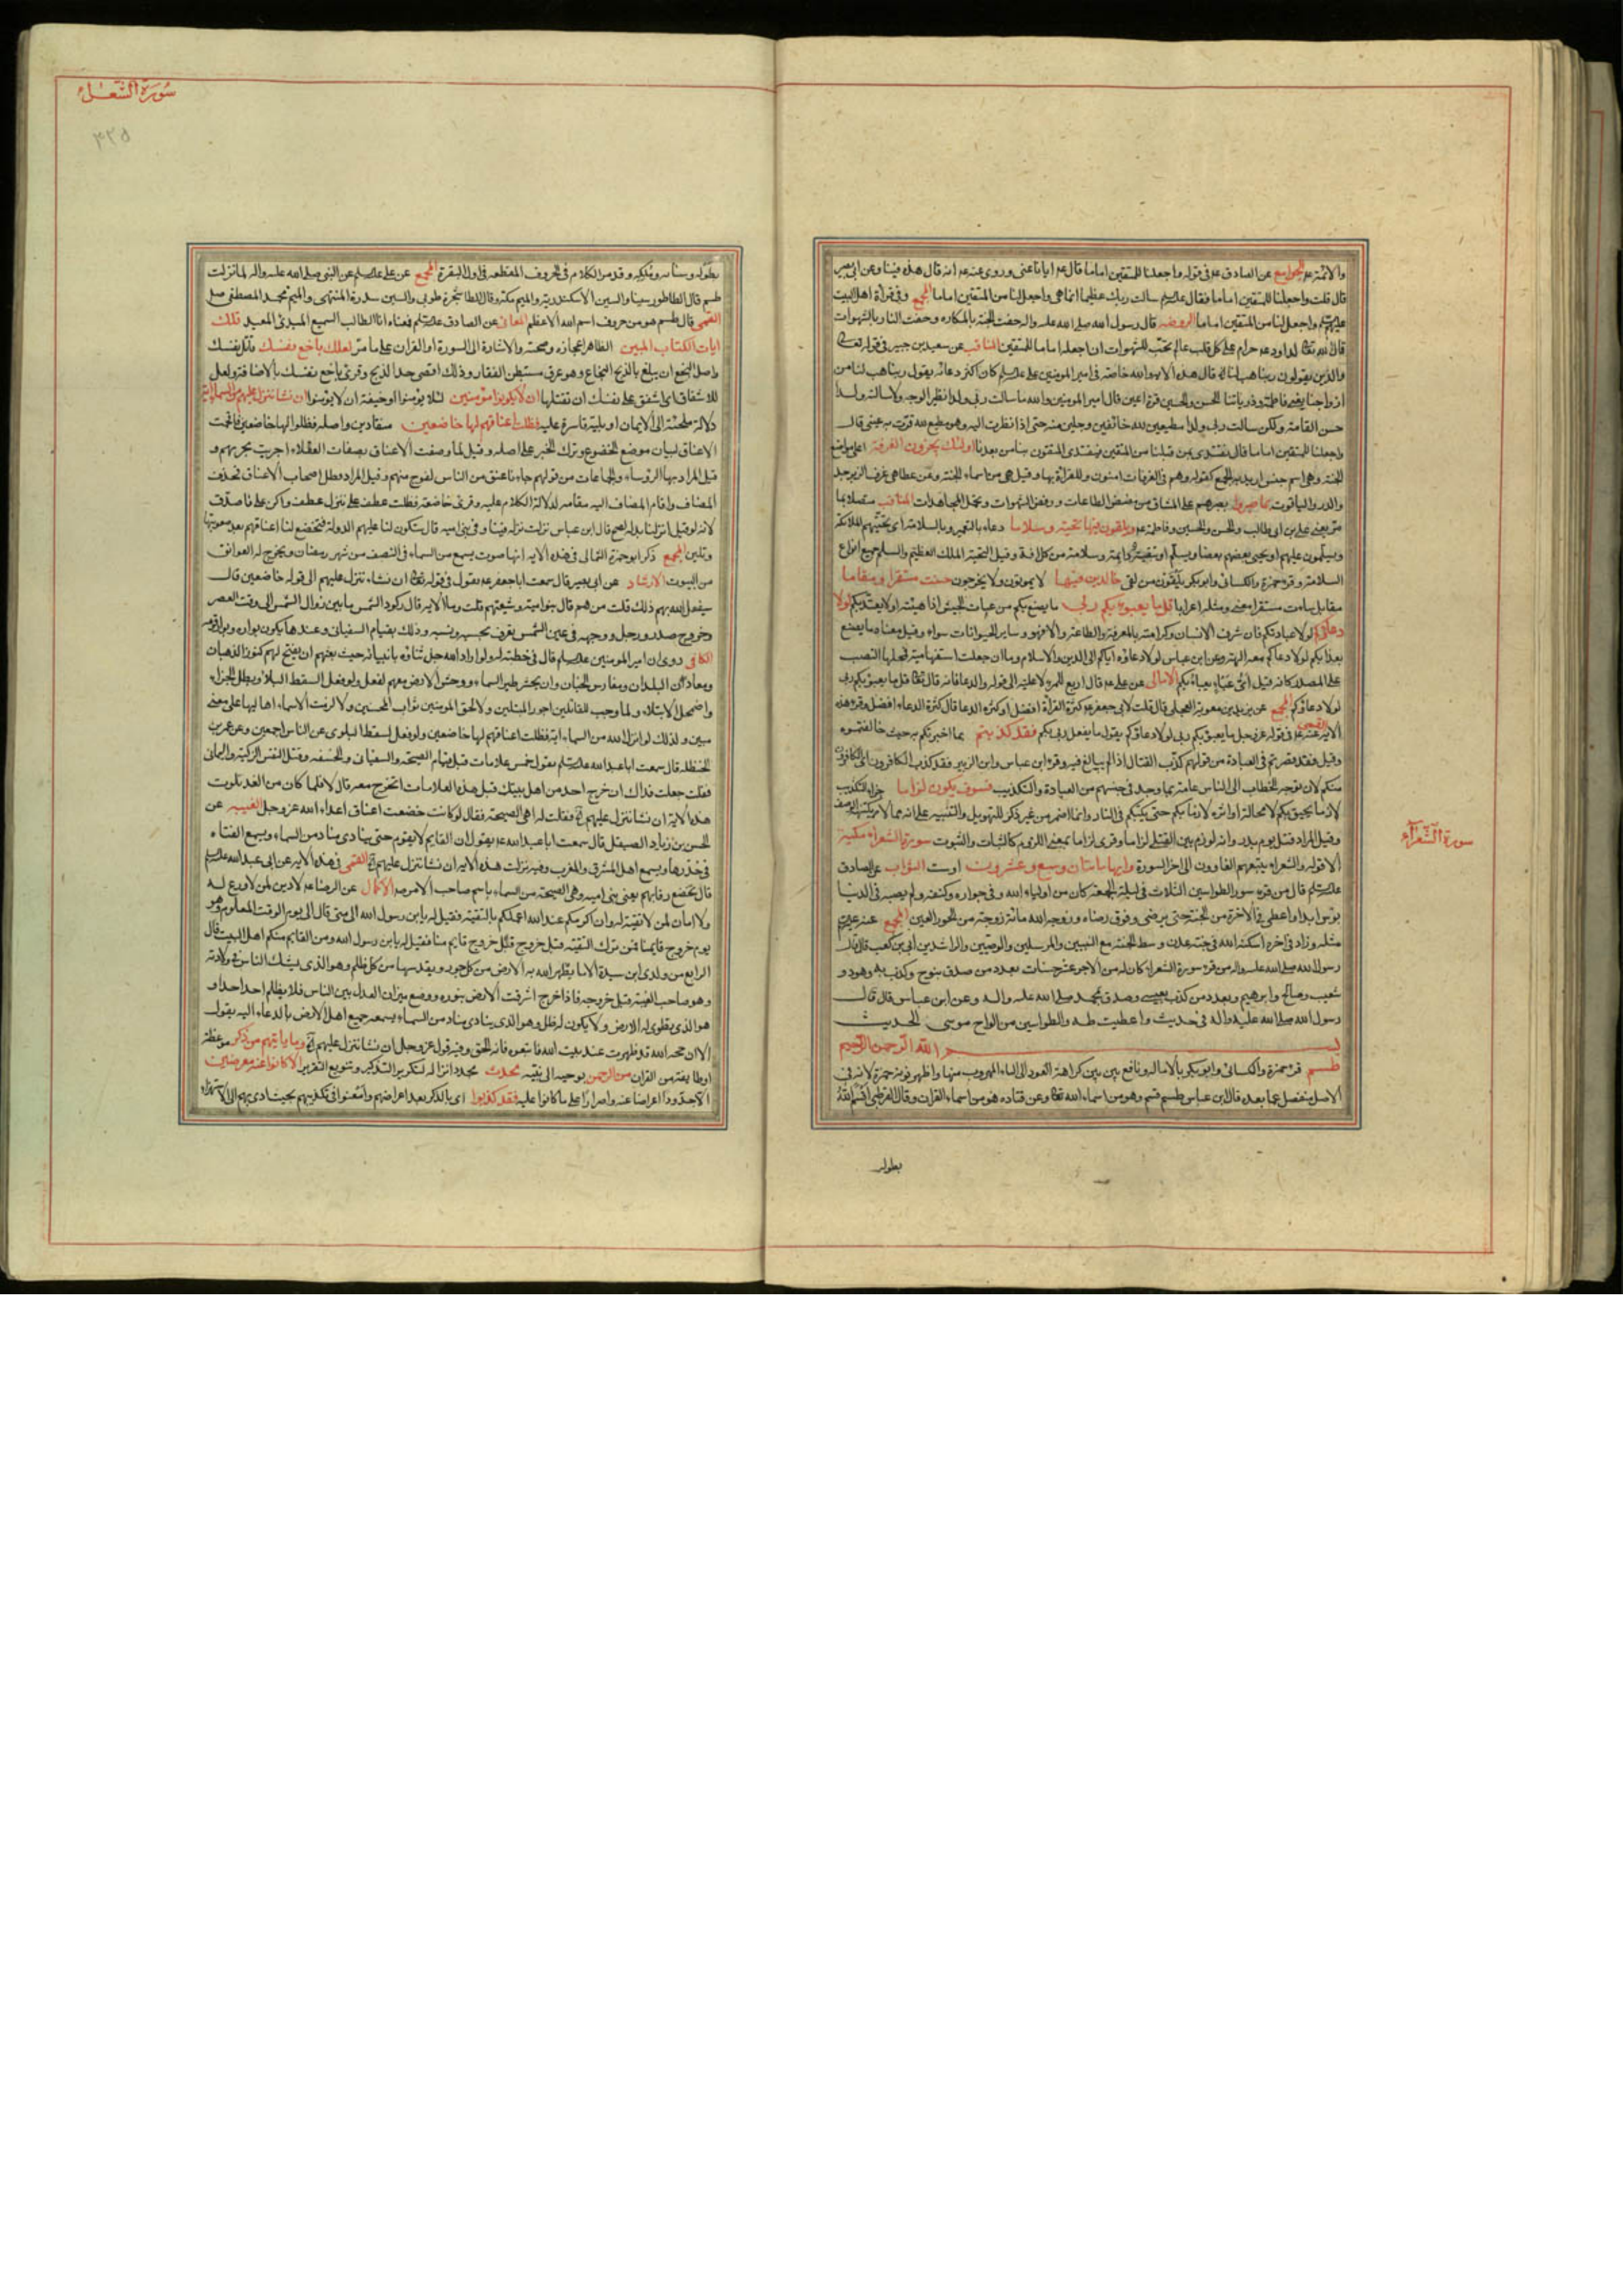 والائمة عم الجوامع عن الصادق عم في قوله واجعلنا للمتقين اماما قال عم ايانا عنى وروى عنه عم انه قال هذه فينا وعن ابي بصير
قال قلت واجعلنا للمتقين اماما فقال عليه السلم سالت ربك عظيما انما هي واجعل لنا من المتقين اماما المجمع وفي قراءة اهل البيت
عليهم السلم واجعل لنا من المتقين اماما الروضة قال رسول الله صلى الله عليه واله حفت الجنة بالمكاره وحفت النار بالشهوات
قال الله تعالى لداود عم حرام على كل قلب عالم محب للشهوات ان اجعله اماما للمتقين المناقب عن سعيد بن جبير في قوله تعالى
والذين يقولون ربنا هب لنا الآية قال هذه الاية والله خاصة في امير المومنين علي عليه السلم كان اكثر دعائه يقول ربنا هب لنا من
ازواجنا يعني فاطمة وذرياتنا الحسن والحسين قرة اعين قال امير المومنين والله ما سالت ربي ولدا نظير الوجه ولا سالته ولدا
حسن القامة ولكن سالت ربي ولدا مطيعين لله خائفين وجلين منه حتى اذا نظرت اليه وهو مطيع لله قرت به عيني قال
واجعلنا للمتقين اماما قال نقتدي بمن قبلنا من المتقين فيقتدي المتقون بنا من بعدنا اولئك يجزون الغرفة اعلى مواضع
الجنة وهي اسم جنس اريد به الجمع كقوله وهم في الغرفات امنون وللقراءة بها وقيل هي من اسماء الجنة وعن عطا هي غرف الزبرجد
والدر والياقوت بما صبروا بصبرهم على المشاق من مضض الطاعات ورفض الشهوات وتحمل المجاهدات المناقب متصلا بما
مر يعني علي بن ابي طالب والحسن والحسين وفاطمة عم ويلقون فيها تحية وسلاما دعاء بالتعمير وبالسلامة اى تحييهم الملائكة
ويسلمون عليهم او يحيي بعضهم بعضا ويسلم او تبقية دايمة وسلامة من كل افة وقيل التحية الملك العظيم والسلم جميع انواع
السلامة وقرء حمزة والكسائي وابو بكر يلقون من لقي خالدين فيها لا يموتون ولا يخرجون حسنت مستقرا ومقاما
مقابل سامت مستقرا معنى ومثله اعرابا قل ما يعبؤا بكم ربي ما يصنع بكم من عبات الجيش اذا هيئته او لا يعتد بكم لولا
دعاؤكم لولا عبادتكم فان شرف الانسان وكرامته بالمعرفة والطاعة والا فهو وساير الحيوانات سواء وقيل معناه ما يصنع
بعذابكم لولا دعائكم معه الهة وعن ابن عباس لولا دعاؤه اياكم الى الدين والاسلام وما ان جعلت استفهامية فمحلها النصب
على المصدر كانه قيل اي عباء يعباء بكم الامالي عن علي عم قال اربع للمرء لا عليه الى قوله والدعا فانه قال تعالى قل ما يعبؤ بكم ربي
لولا دعاؤكم المجمع عن بريد بن معوية العجلي قال قلت لابي جعفر عم كثرة القراءة افضل او كثرة الدعا قال كثرة الدعاء افضل وقرء هذه
الاية القمي عنه عم في قوله عز وجل ما يعبؤ بكم ربي لولا دعاؤكم يقول ما يفعل ربي بكم فقد كذبتم بما اخبرتكم به حيث خالفتموه
وقيل فقد قصرتم في العبادة من قولهم كذب القتال اذا لم يبالغ فيه وقرء ابن عباس وابن الزبير فقد كذب الكافرون اى الكافرون
منكم لان توجه الخطاب الى الناس عامة بما وجد في جنسهم من العبادة والتكذيب فسوف يكون لزاما جزاء التكذيب
لازما يحيق بكم لا محالة او اثره لازما بكم حتى يكبكم في النار وانما اضمر من غير ذكر للتهويل والتنبيه على انه مما لا يكتنهه الوصف
وقيل المراد قتل يوم بدر وانه لوزم بين القتلى لزاما وقرئ لزاما بمعنى اللزوم كالثبات والثبوت سورة الشعراء مكية
الا قوله والشعراء يتبعهم الغاوون الى اخر السورة وايها ماتان وسبع وعشرون او ست الثواب عن الصادق
عليه السلم قال من قرء سور الطواسين الثلاث في ليلة الجمعة كان من اولياء الله وفي جواره وكنفه ولم يصبه في الدنيا
بؤس ابدا واعطي في الاخرة من الجنة حتى يرضى وفوق رضاه وزوجه الله مائة زوجة من الحور العين المجمع عنه عليه السلم
مثله وزاد في اخره اسكنه الله في جنة عدن وسط الجنة مع النبيين والمرسلين والوصيين والراشدين ابي بن كعب قال قال
رسول الله صلى الله عليه واله من قرء سورة الشعراء كان له من الاجر عشر حسنات بعدد من صدق بنوح وكذب به وهود و
شعيب وصالح وابرهيم وبعدد من كذب بعيسى وصدق بمحمد صلى الله عليه واله وعن ابن عباس قال قال
رسول الله صلى الله عليه واله في حديث واعطيت طه والطواسين من الواح موسى الحديث
بسم الله الرحمن الرحيم
طسم قرء حمزة والكسائي وابو بكر بالامالة ونافع بين بين كراهة العود الى الياء المهروب منها واظهر نونه حمزة لانه في
الاصل منفصل عما بعده قال ابن عباس طسم قسم وهو من اسماء الله تعالى وعن قتاده هو من اسماء القران وقال القرظي اقسم الله
سورة الشعراء
بطوله
سورة الشعراء
۴۲۵
بطوله وسنائه وملكه وقد مر الكلام في الحروف المقطعه في اول البقرة المجمع عن علي عليه السلم عن النبي صلى الله عليه واله لما نزلت
طسم قال الطا طور سينا والسين الاسكندرية والميم مكة وقال الطا شجرة طوبى والسين سدرة المنتهى والميم محمد المصطفى صلى
القمي قال طسم هو من حروف اسم الله الاعظم المعاني عن الصادق عليه السلم فمعناه انا الطالب السميع المبدئ المعيد تلك
ايات الكتاب المبين الظاهر اعجازه وصحته والاشارة الى السورة او القران على ما مر لعلك باخع نفسك قاتل نفسك
واصل البخع ان يبلغ بالذبح البخاع وهو عرق مستبطن الفقار وذلك اقصى حد الذبح وقرئ باخع نفسك بالاضافة ولعل
للاشفاق اى اشفق على نفسك ان تقتلها ان لا يكونوا مؤمنين لئلا يؤمنوا او خيفة ان لا يؤمنوا ان نشا ننزل عليهم من السماء اية
دلالة ملجئة الى الايمان او بلية قاسرة عليه فظلت اعناقهم لها خاضعين منقادين واصله فظلوا لها خاضعين فاقحمت
الاعناق لبيان موضع الخضوع وترك الخبر على اصله وقيل لما وصفت الاعناق بصفات العقلاء اجريت مجريهم و
قيل المراد بها الرؤساء والجماعات من قولهم جاءنا عنق من الناس لفوج منهم وقيل المراد وظل اصحاب الاعناق فحذف
المضاف واقام المضاف اليه مقامه لدلالة الكلام عليه وقرئ خاضعة فظلت عطف على ننزل عطف واكن على فاصدق
لانه لو قيل انزلنا بدله لصح قال ابن عباس نزلت نزله فينا وفي بني اميه قال ستكون لنا عليهم الدولة فتخضع لنا اعناقهم بعد صعوبتها
وتلين المجمع ذكر ابو حمزة الثمالي في هذه الاية انها صوت يسمع من السماء في النصف من شهر رمضان ويخرج له العواتق
من البيوت الارشاد عن ابي بصير قال سمعت ابا جعفر عم يقول في قوله تعالى ان نشاء ننزل عليهم الى قوله خاضعين قال
سيفعل الله بهم ذلك قلت من هم قال بنو امية وشيعتهم قلت وما الاية قال ركود الشمس ما بين زوال الشمس الى وقت العصر
وخروج صدر رجل ووجهه في عين الشمس يعرف بحسبه ونسبه وذلك بقيام السفياني وعندها يكون بواره وبوار قومه
الكافي روى ان امير المومنين عليه السلم قال في خطبته له ولو اراد الله جل ثناؤه بانبيائه حيث بعثهم ان يفتح لهم كنوز الذهبان
ومعادن البلدان ومغارس الجنان وان يحشر طير السماء ووحش الارض معهم لفعل ولو فعل لسقط البلاء وبطل الجزاء
واضمحل الابتلاء ولما وجب للقائلين اجور المبتلين ولا لحق المومنين ثواب المحسنين ولا لزمت الاسماء اهاليها على معنى
مبين ولذلك لو انزل الله من السماء اية فظلت اعناقهم لها خاضعين ولو فعل لسقط البلوى عن الناس اجمعين وعن عمر بن
الحنظله قال سمعت ابا عبد الله عليه السلم يقول خمس علامات قبل قيام الصيحة والسفياني والخسفه وقتل النفس الزكية واليماني
فقلت جعلت فداك ان خرج احد من اهل بيتك قبل هذه العلامات انخرج معه قال لا فلما كان من الغد تلوت
هذه الاية ان نشا ننزل عليهم الخ فقلت له اهي الصيحة فقال لو كانت خضعت اعناق اعداء الله عز وجل الغيبه عن
الحسن بن زياد الصيقل قال سمعت ابا عبد الله عم يقول ان القايم لا يقوم حتى ينادي مناد من السماء ويسمع الفتاه
في خدرها ويسمع اهل المشرق والمغرب وفيه نزلت هذه الاية ان نشا ننزل عليهم الخ القمي في هذه الاية عن ابي عبد الله عليه السلم
قال تخضع رقابهم يعني بني اميه وهي الصيحة من السماء باسم صاحب الامر عم الاكمال عن الرضا عم لا دين لمن لا ورع له
ولا امان لمن لا تقية له وان اكرمكم عند الله اعملكم بالتقية فقيل له يابن رسول الله الى متى قال الى يوم الوقت المعلوم وهو
يوم خروج قايمنا فمن ترك التقيه قبل خروج قايمنا فليس منا فقيل له يابن رسول الله ومن القايم منكم اهل البيت قال
الرابع من ولدي ابن سيدة الاماء يطهر الله به الارض من كل جور ويقدسها من كل ظلم وهو الذي يشك الناس في ولادته
وهو صاحب الغيبة قبل خروجه فاذا خرج اشرقت الارض بنوره ووضع ميزان العدل بين الناس فلا يظلم احد احدا و
هو الذي يطوى له الارض ولا يكون له ظل وهو الذي ينادي مناد من السماء يسمعه جميع اهل الارض بالدعاء اليه يقول
الا ان حجه الله قد ظهرت عند بيت الله فاتبعوه فانه الحق وفيه قول عز وجل ان نشا ننزل عليهم الخ وما ياتيهم من ذكر موعظة
او طايفة من القران من الرحمن يوحيه الى نبيه محدث مجدد انزاله لتكرير التذكير وتنويع التقرير الا كانوا عنه معرضين
الا جددوا اعراضا عنه واصرارا على ما كانوا عليه فقد كذبوا اى بالذكر بعد اعراضهم وامعنوا في تكذيبهم بحيث ادى بهم الى الاستهزاء